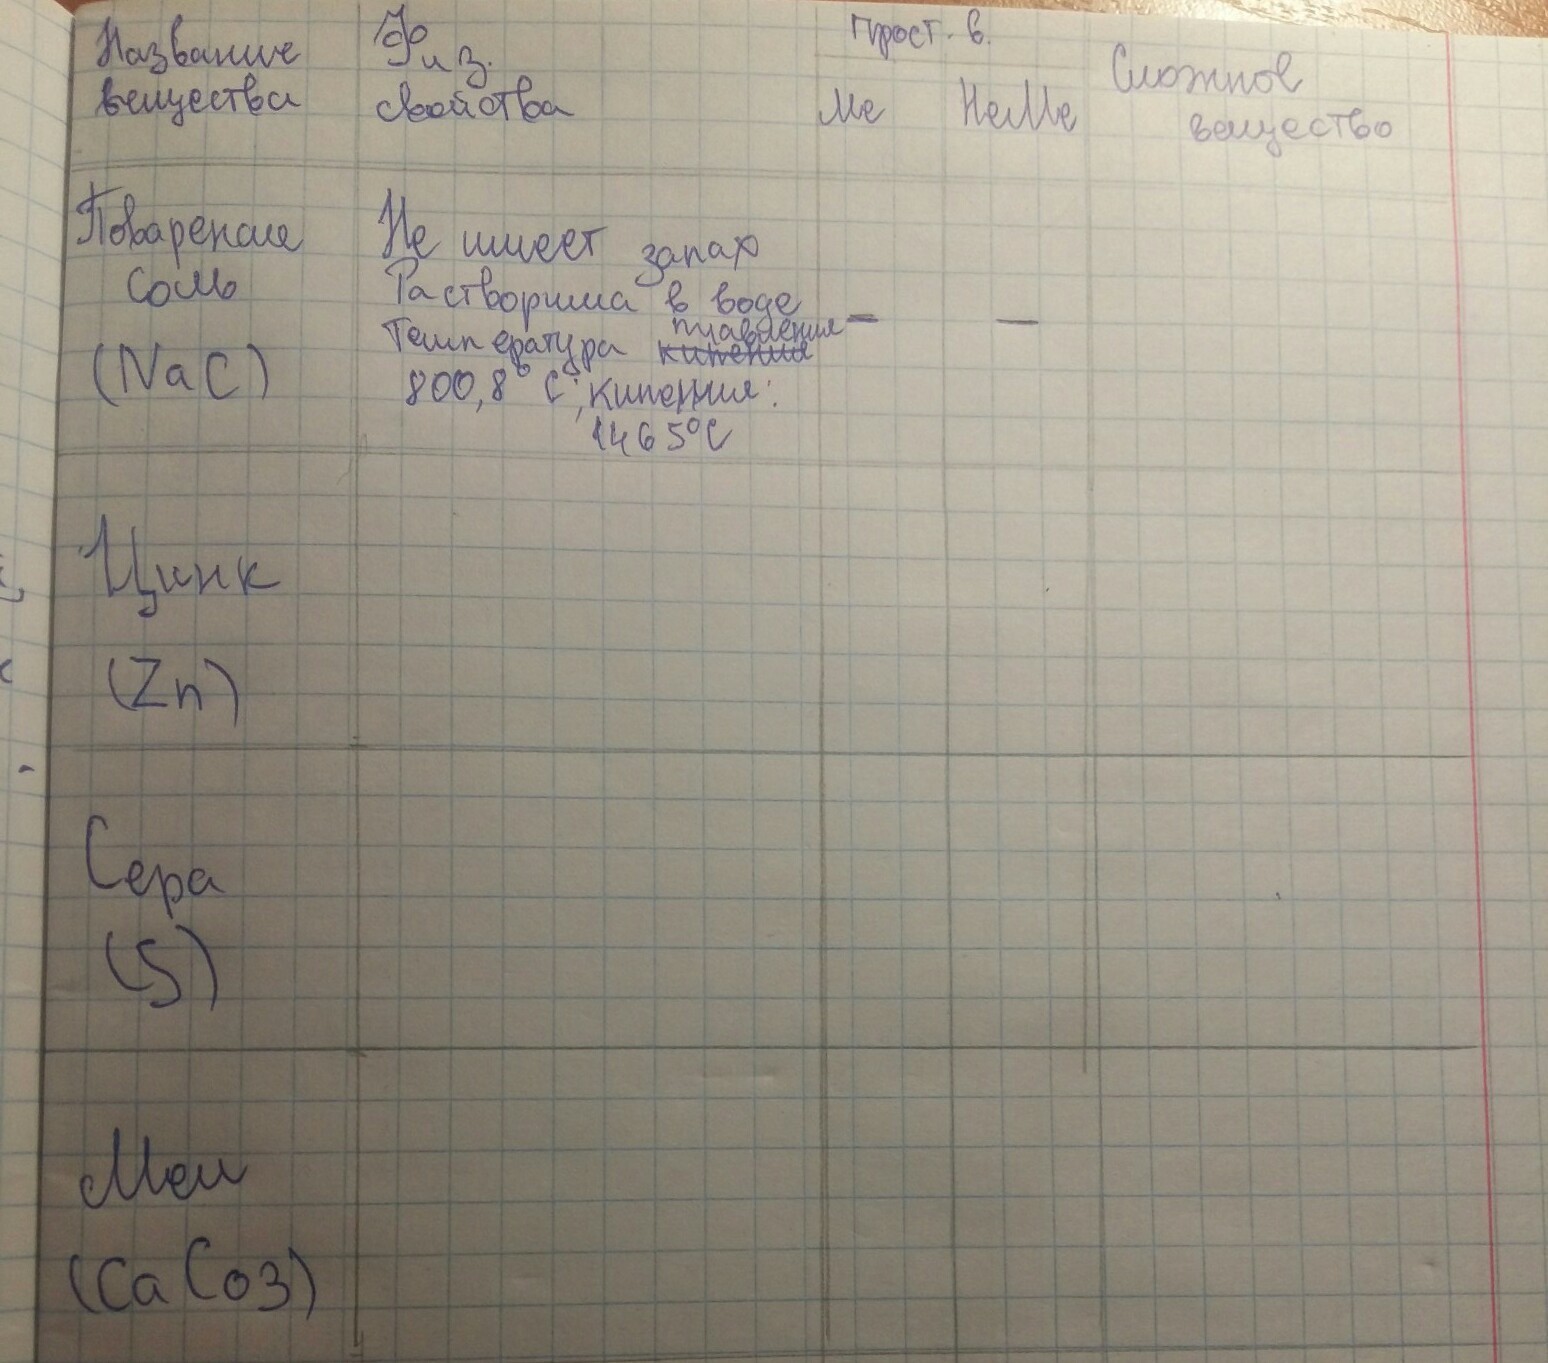 Название
вещества
Физ.
свойства
Прост. в.
Ме
НеМе
Сложное
вещество
Поваренная
соль
(NaC)
Не имеет запах
Растворима в воде
температура кипения плавления
800,8°С; кипения:
1465°С
—
—
Цинк
(Zn)
Сера
(S)
Мел
(CaCo3)